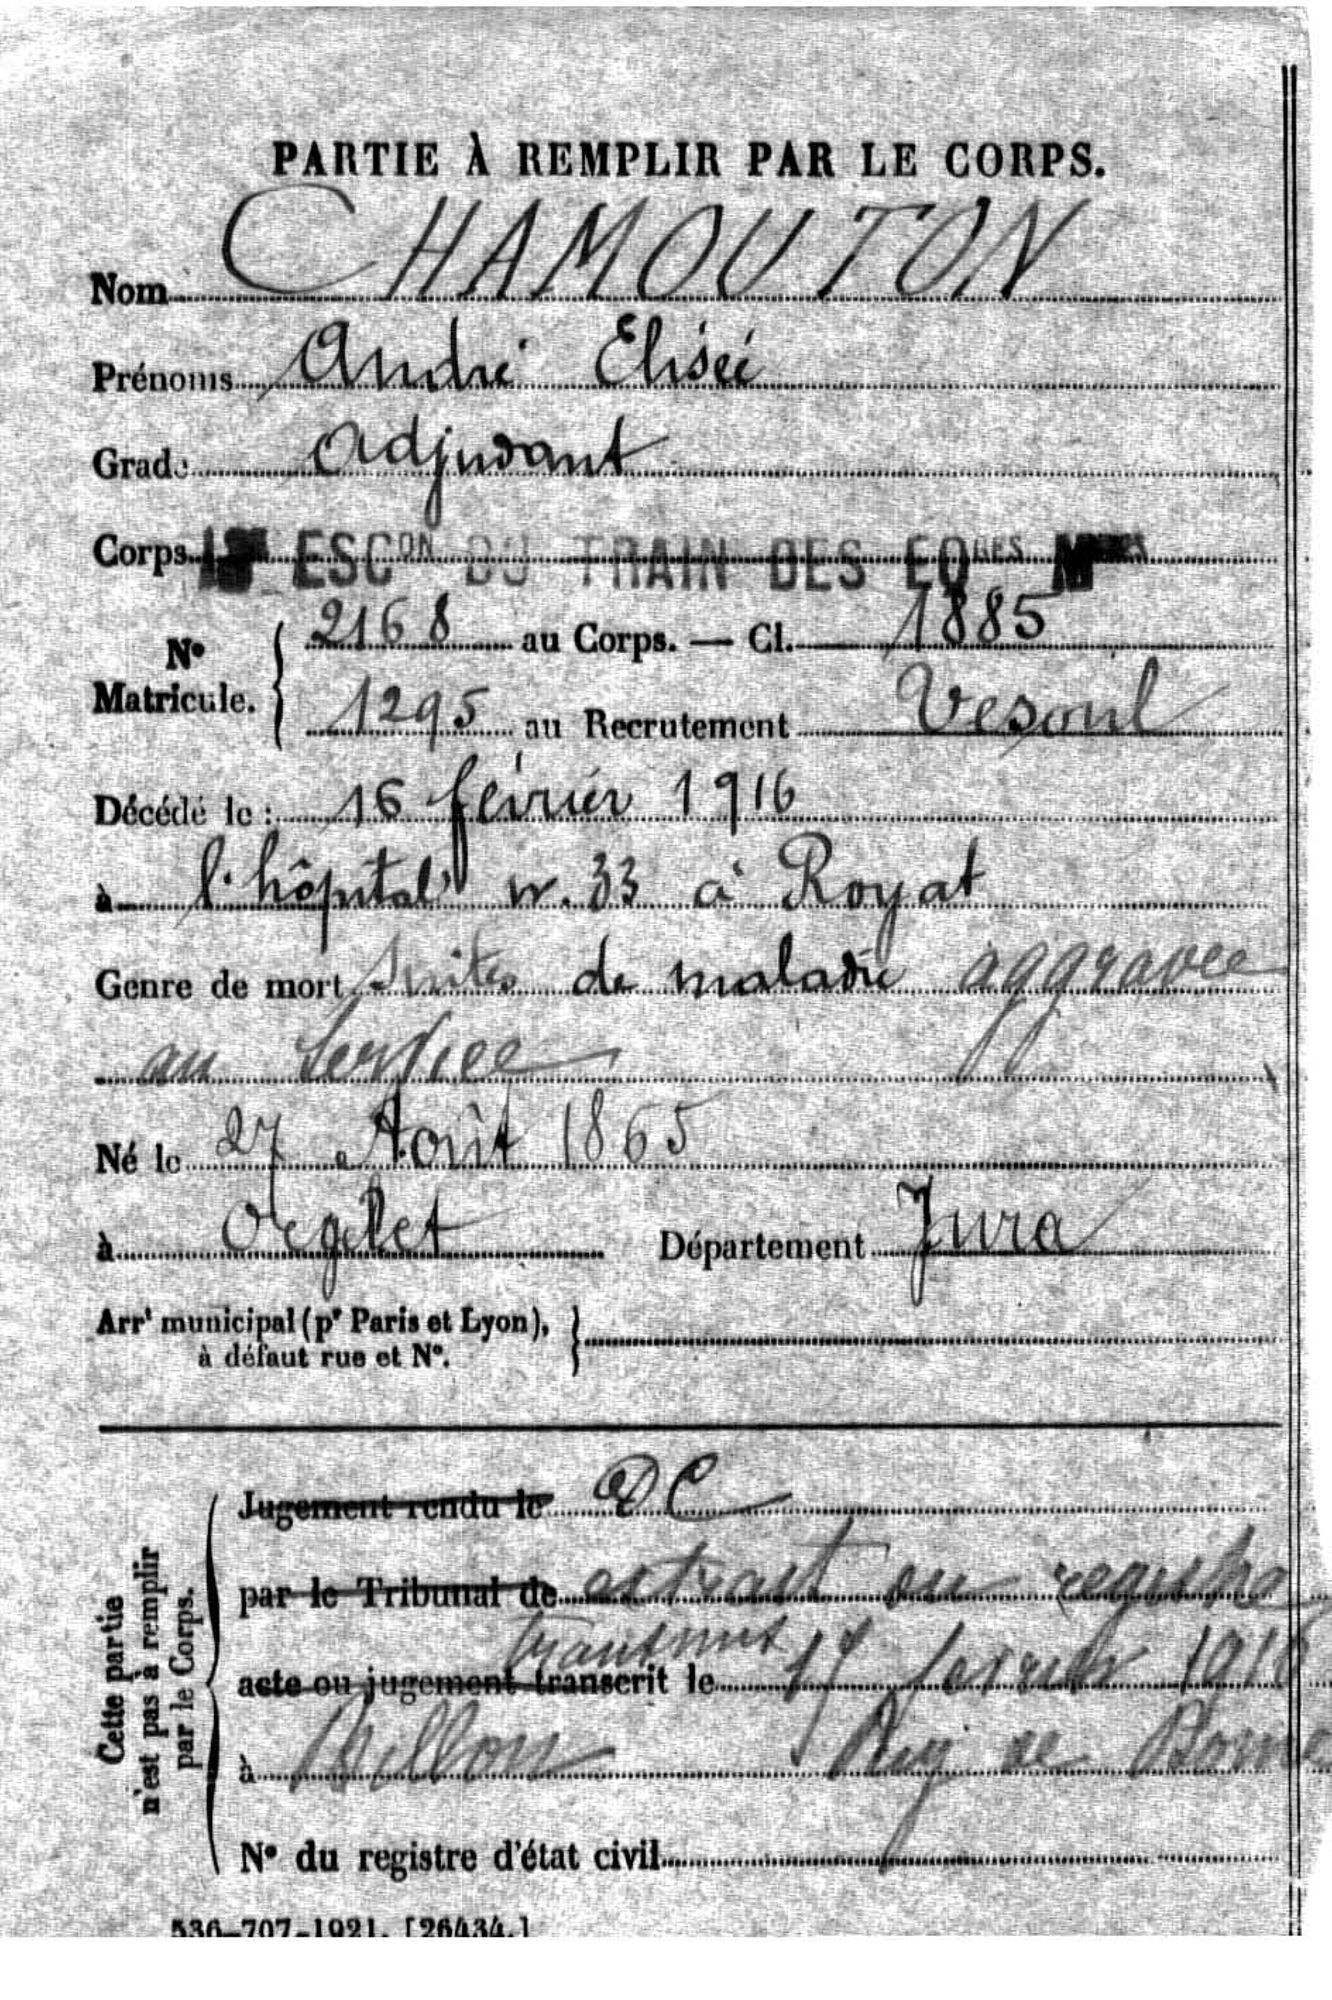 PARTIE À REMPLIR PAR LE CORPS.
Nom CHAMOUTON
Prénoms André Elisée
Grade Adjudant
Corps ESCON DU TRAIN DES EQAGES
No Matricule. 2168 au Corps. — Cl. 1885
1295 au Recrutement Vesoul
Décédé le : 16 février 1916
à l'hôpital n. 33 à Royat
Genre de mort Suites de maladie aggravée
au service
Né le 27 Août 1865
à Orgelet Département Jura
Arrt municipal (pr Paris et Lyon),
à défaut rue et No.
Cette partie
n'est pas à remplir
par le Corps.
Jugement rendu le DC
par le Tribunal de extrait du registre
transmis
acte ou jugement transcrit le 17 février 1916
à Billom Puy de Dome
No du registre d'état civil
536-707-1921. [26434.]